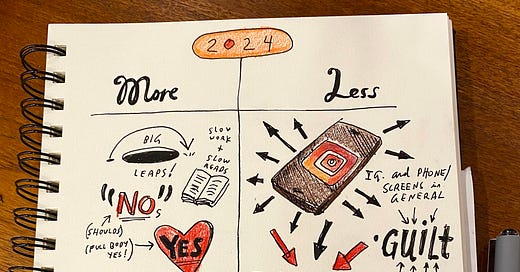 2024
More
BIG
LEAPS!
SLOW
WORK
+
SLOW
READS
"NO"s
(SHOULDS)
(FULL BODY
YES!)
YES
Less
IG. and PHONE/
SCREENS in
GENERAL
GUILT